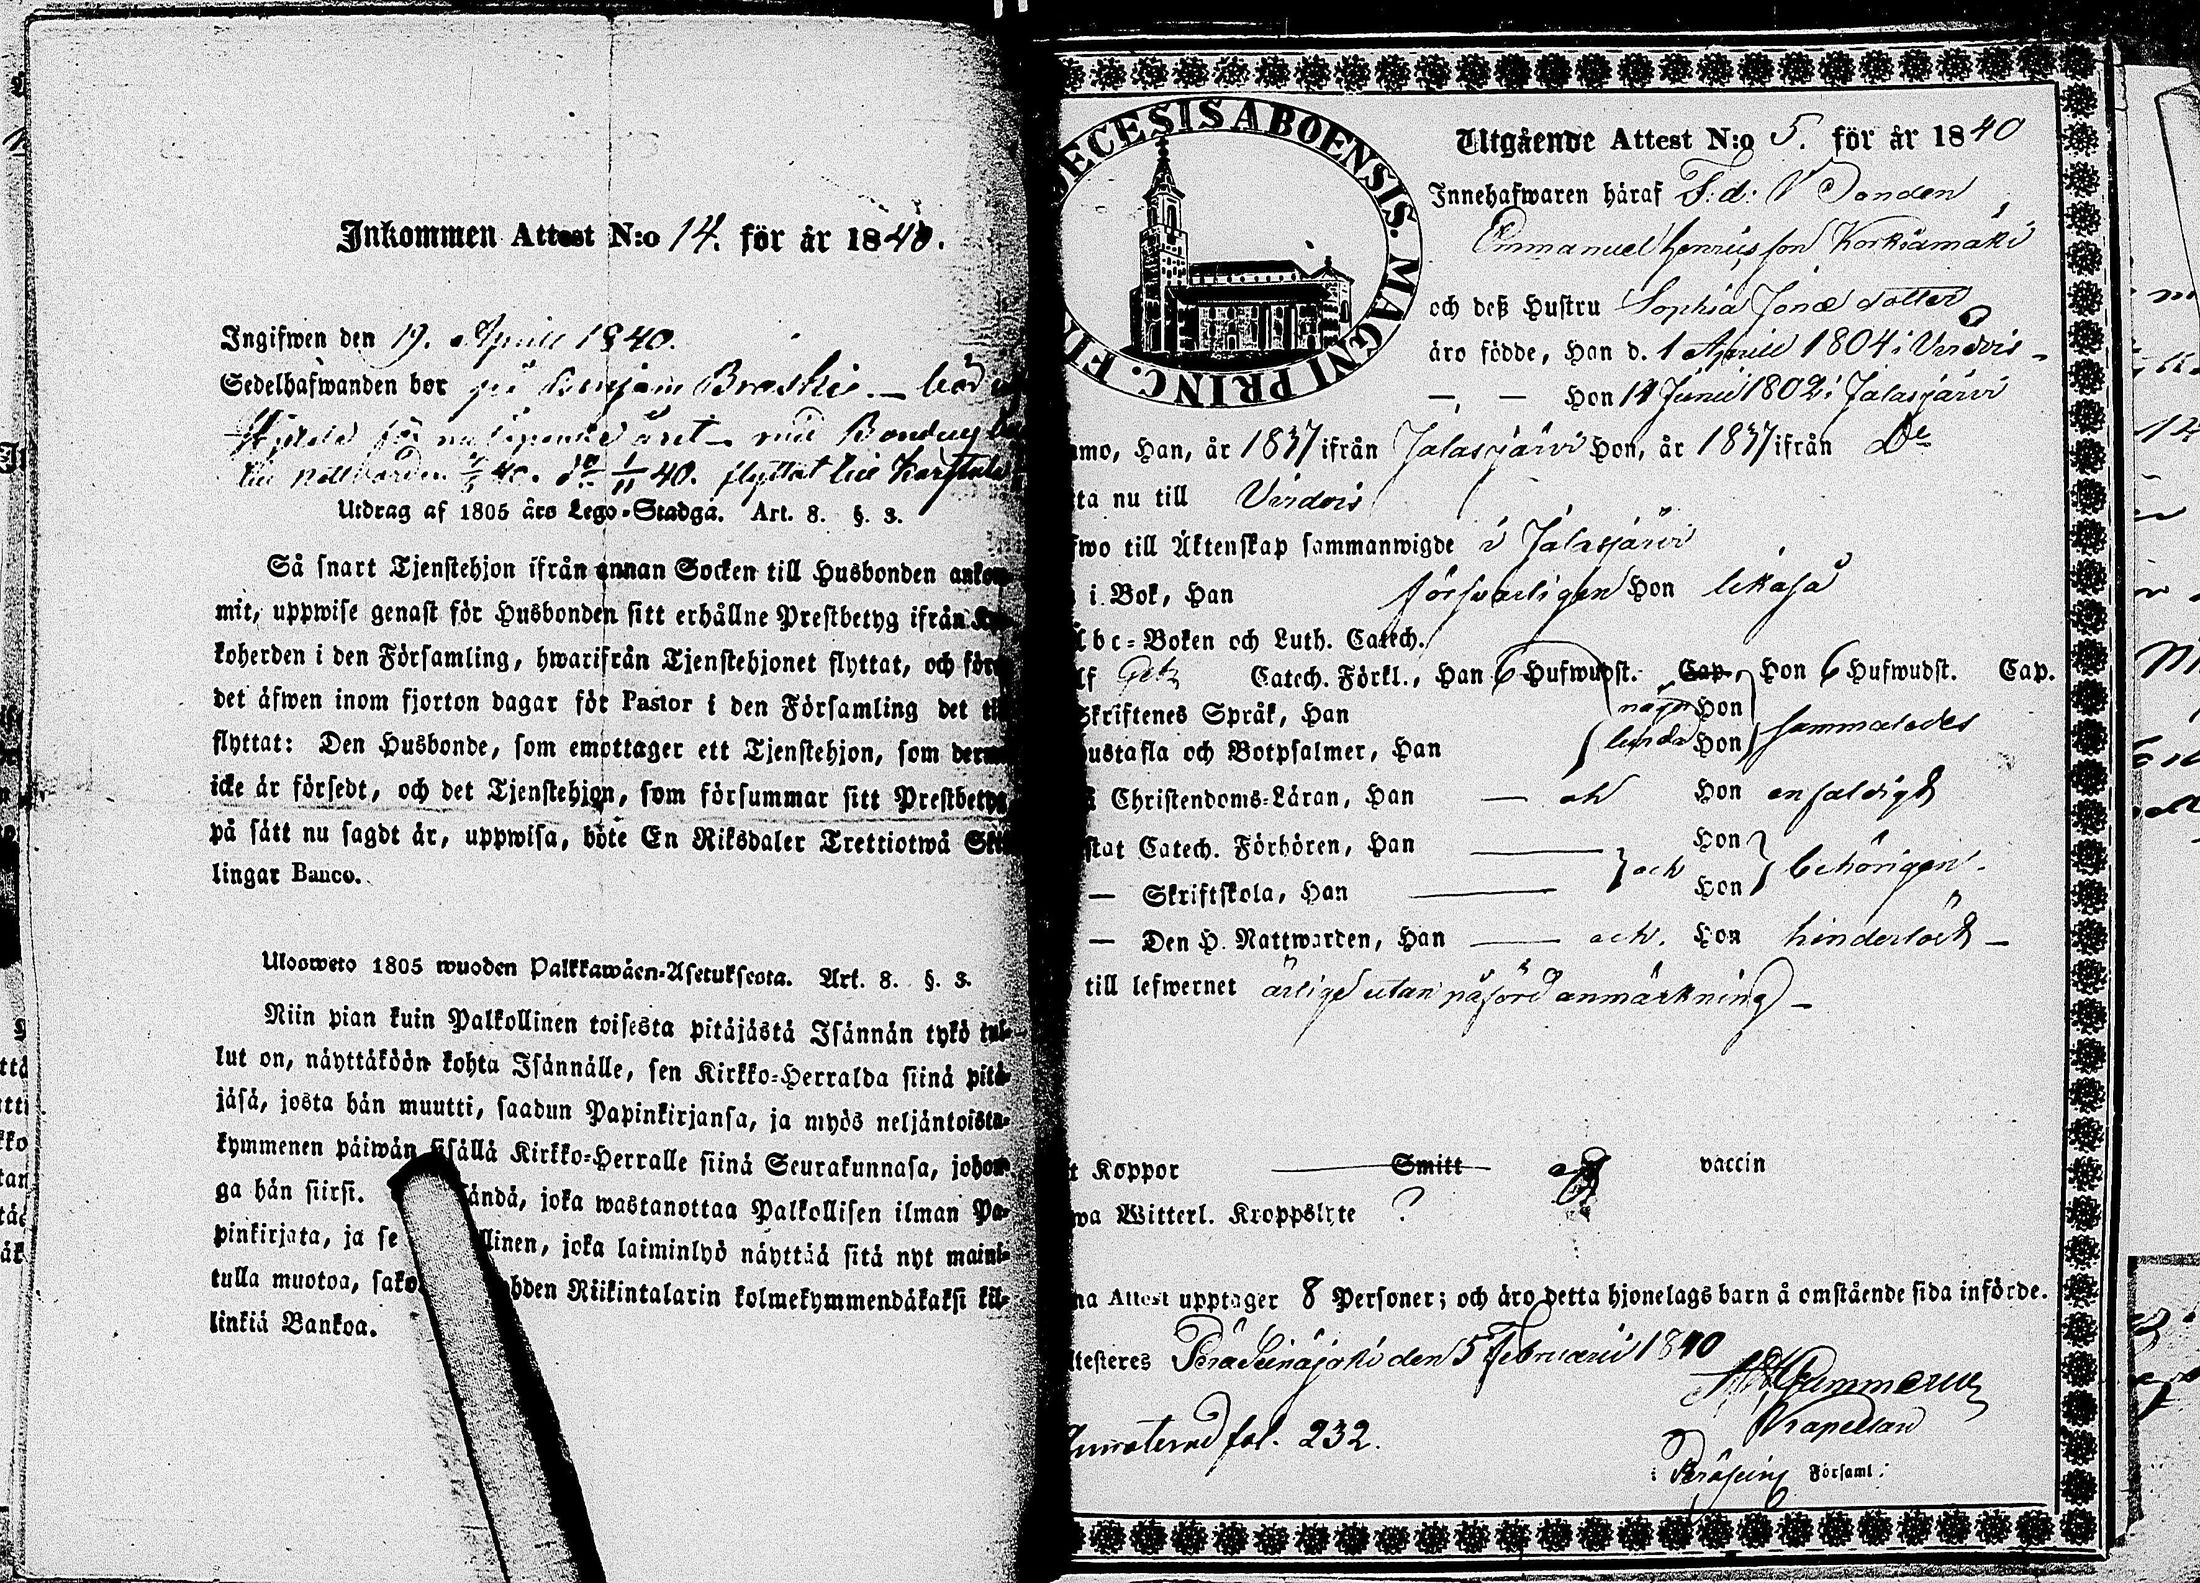 Inkommen Attest N:o 14. för år 1840.
Ingifwen den 19. Aprill 1840.
Sedelhafwanden bor på
för nu löpande året
40. 40. flyttat till Karstula
Utdrag af 1805 års Lego-Stadga. Art. 8. §. 3.
Så snart Tjenstehjon ifrån annan Socken till Husbonden ankom-
mit, uppwise genast för Husbonden sitt erhållne Prestbetyg ifrån Kyr-
koherden i den Församling, hwarifrån Tjenstehjonet flyttat, och före
det äfwen inom fjorton dagar för Pastor i den Församling det till
flyttat: Den Husbonde, som emottager ett Tjenstehjon, som dermed
icke är försedt, och det Tjenstehjon, som försummar sitt Prestbetyg
på sätt nu sagdt är, uppwisa, böte En Riksdaler Trettiotwå Skil-
lingar Banco.
Ulosweto 1805 wuoden Palkkawäen-Asetuksesta. Art. 8. §. 3.
Niin pian kuin Palkollinen toisesta pitäjästä Isännän tykö tul-
lut on, näyttäköön kohta Isännälle, sen Kirkko-Herralda siinä pitä-
jäsä, josta hän muutti, saadun Papinkirjansa, ja myös neljäntoista-
kymmenen päiwän sisällä Kirkko-Herralle siinä Seurakunnasa, johon-
ga hän siirsi. ändä, joka wastanottaa Palkollisen ilman Pa-
pinkirjata, ja se llinen, joka laiminlyö näyttää sitä nyt maini-
tulla muotoa, sako hden Riikintalarin kolmekymmendäkaksi kil-
linkiä Bankoa.
DECESIS ABOENSIS. MAGNI PRINC. FIN
Utgående Attest N:o 5. för år 1840
Innehafwaren häraf F:d: Bonden
Emmanuel Henricsson Korkiamäki
och deß Hustru Sophia Jonæ dotter
äro födde, Han d. 1 Aprill 1804 i Virdois
— — Hon 14 Junii 1802 i Jalasjärvi
mo, Han, år 1837 ifrån Jalasjärvi Hon, år 1837 ifrån Do
ta nu till Virdois
fwo till Äktenskap sammanwigde i Jalasjärvi
i Bok, Han försvarligen Hon likaså
Abc-Boken och Luth. Catech.
lf Catech. Förkl., Han 6 Hufwudst. Cap. Hon 6 Hufwudst. Cap.
Skriftenes Språk, Han någor Hon
ustafla och Botpsalmer, Han lunda Hon sammaledes
Christendoms-Läran, Han — och Hon enfaldigt
stat Catech. Förhören, Han Hon
— Skriftskola, Han och Hon behörigen
— Den H. Nattwarden, Han — och. Hon hinderlöst —
till lefwernet ärlige utan påförd anmärkning —
t Koppor Smitt vaccin
wa Witterl. Kroppslyte ?
na Attest upptager 8 Personer; och äro detta hjonelags barn å omstående sida införde.
ttesteres Perä Seinäjoki den 5 Februarii 1840
Kapellan
fol. 232.
i Peräsein Församl: